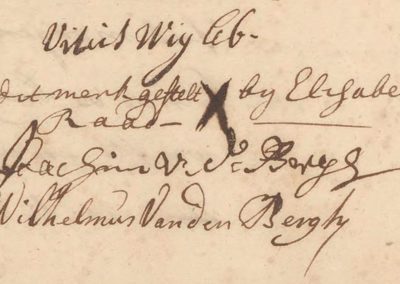 Vitus Wigleb-
dit merk gestelt X by Elisabe
Raad-
Joachim V: Bergh
Wilhelmus Van den Bergh